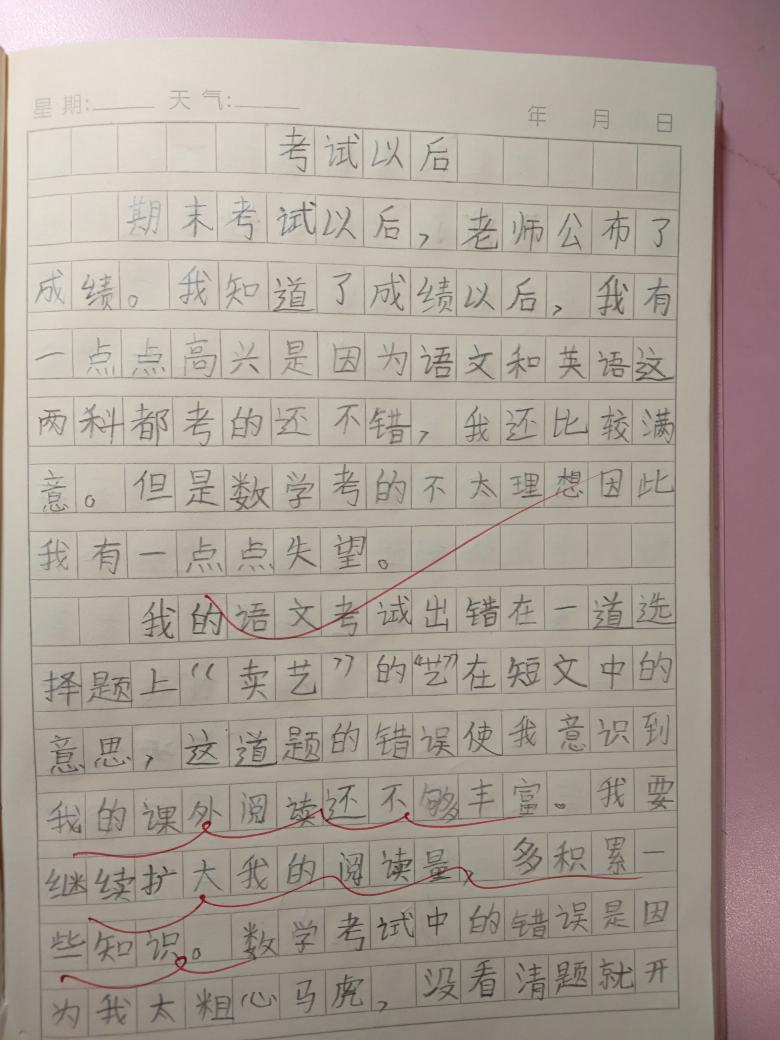 星期: 天气: 年 月 日
考试以后
期末考试以后，老师公布了
成绩。我知道了成绩以后，我有
一点点高兴是因为语文和英语这
两科都考的还不错，我还比较满
意。但是数学考的不太理想因此
我有一点点失望。
我的语文考试出错在一道选
择题上“卖艺”的“艺”在短文中的
意思，这道题的错误使我意识到
我的课外阅读还不够丰富。我要
继续扩大我的阅读量，多积累一
些知识。数学考试中的错误是因
为我太粗心马虎，没看清题就开